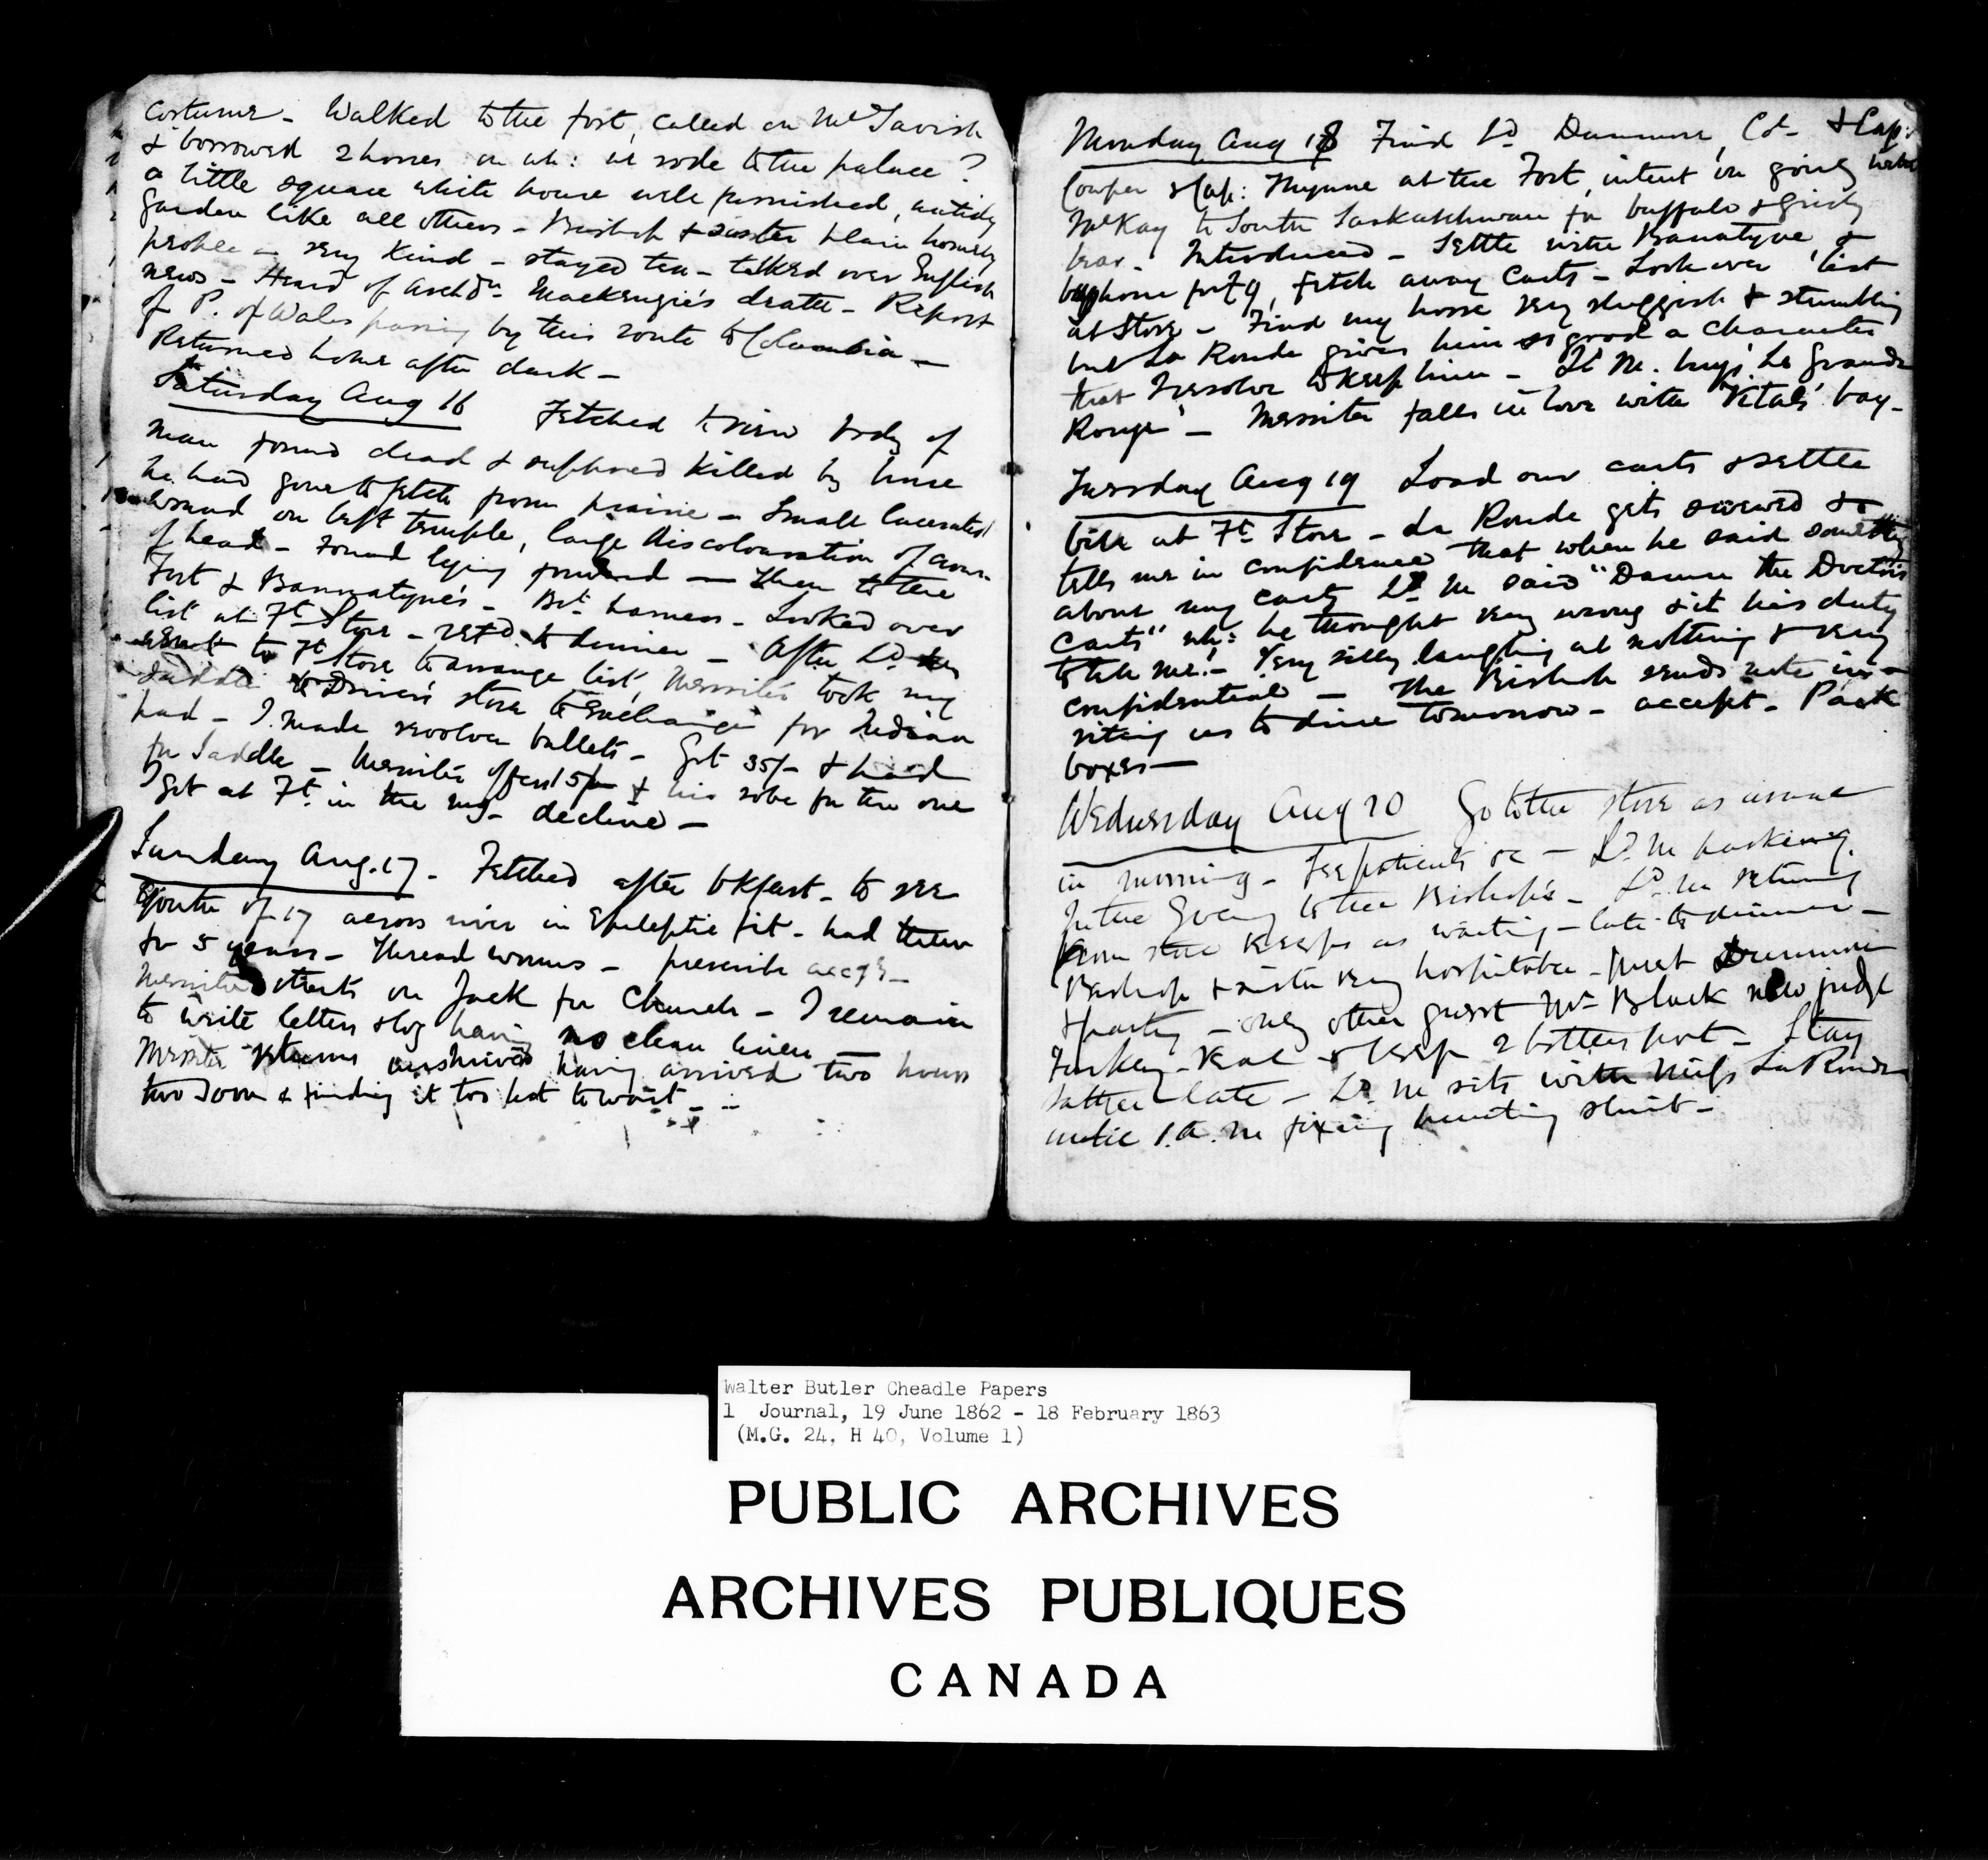 costume - Walked to the fort, called on McTavish
& borrowed 2 horses on wh: we rode to the palace?
a little square white house well furnished, untidy
garden like all others - Bishop & sister plain homely
people - very kind - stayed tea - talked over English
news - Heard of Archdn. Mackenzie's death - Report
of P. of Wales passing by this route to Columbia -
Returned home after dark -
Saturday Aug 16 Fetched to view body of
man found dead & supposed killed by horse
he had gone to fetch from prairie - Small lacerated
wound on left temple, large discolouration of crown
of head - found lying forward - Then to the
Fort & Bannatyne's - Bt. harness - Looked over
list at Ft. Store - retd. to dinner - After Ld.
went to Ft Store to arrange list, Messiter took my
saddle to Driver's store to exchange for Indian
had - I made revolver bullets - Got 35/- & had
for Saddle - Messiter offers 15/- & his robe for the one
I got at Ft. in the mg - decline -
Sunday Aug. 17 - Fetched after bkfast - to see
youth of 17 across river in Epileptic fit - had them
for 5 years - Thread worms - prescribe accgy -
Messiter starts on Jack for Church - I remain
to write letters & log having no clean linen
Messiter returns unshrived having arrived two hours
two soon & finding it too hot to wait -
Monday Aug 18 Find Ld. Dunmore, Col. & Cap:
Cowper & Cap: Thynne at the Fort, intent on going with
McKay to South Saskatchewan for buffalo & grisly
bear - Introduced - Settle with Banatyne &
horse for £9, fetch away carts - Look over list
at Store - Find my horse very sluggish & stumbling
but La Ronde gives him so good a character
that I resolve to keep him - Ld M. buys 'Le Grand
Rouge' - Messiter falls in love with Vital's bay -
Tuesday Aug 19 Load our carts & settle
bill at Ft. Store - La Ronde gets screwed &
tells me in confidence that when he said something
about my carts Ld. M said "Damn the Doctor's
carts" wh: he thought very wrong & it his duty
to tell me! - Very silly laughing at nothing & very
confidential - The Bishop sends note in-
viting us to dine tomorrow - accept - Pack
boxes -
Wednesday Aug 20 Go to the store as usual
in morning - See patients &c - Ld. M packing.
In the Eveng to the Bishop's - Ld. M returning
from store keeps us waiting - late to dinner -
Bishop & sister very hospitable - meet Dunmore
& party - only other guest Mr Black new judge
Turkey - Veal & 2 bottles port - Stay
rather late - Ld. M sits with Miss La Ronde
until 1. A. M fixing hunting shirt -
Walter Butler Cheadle Papers
1 Journal, 19 June 1862 - 18 February 1863
(M.G. 24, H 40, Volume 1)
PUBLIC ARCHIVES
ARCHIVES PUBLIQUES
CANADA